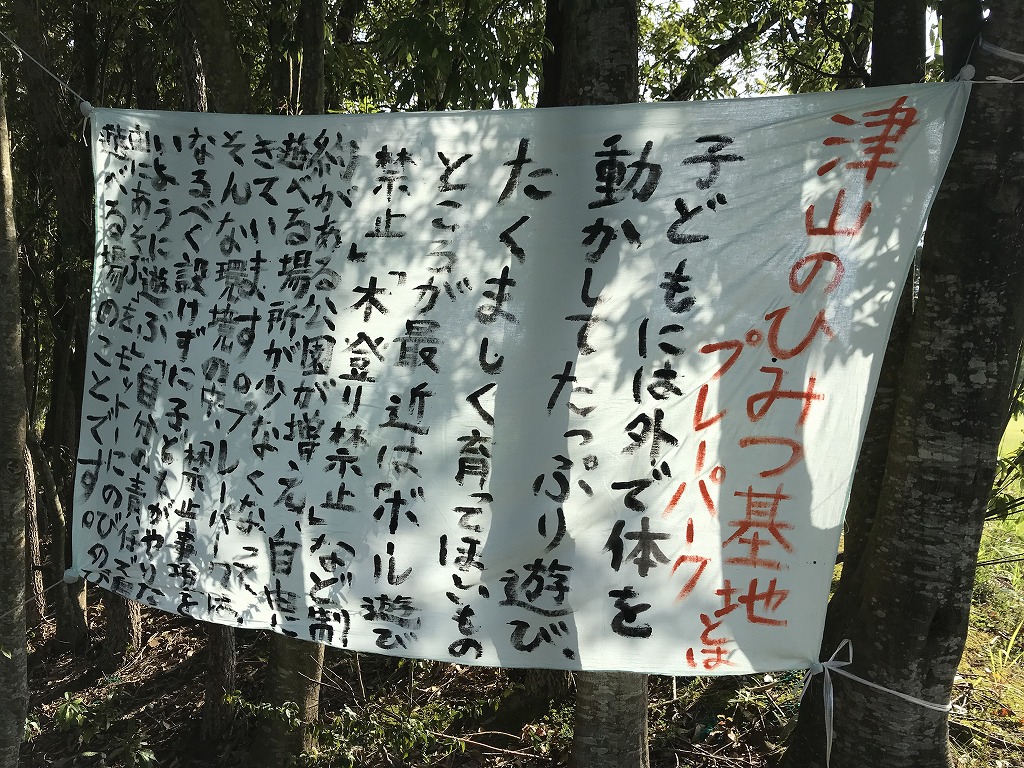 津山のひみつ基地
プレーパークとは
子どもには外で体を
動かしてたっぷり遊び、
たくましく育てほいもの
ところが最近は「ボール遊び
禁止」「木登り禁止」など制
約がある公園が増え、自由に
遊べる場所が少なくなって
きています。プレーパークは、
そんな環境の中、禁止事項を
なるべく設けずに子どもがやりた
いように遊ぶ「自分の責任で自
由にあそぶ」をモットーにのびのび
遊べる場のことです。